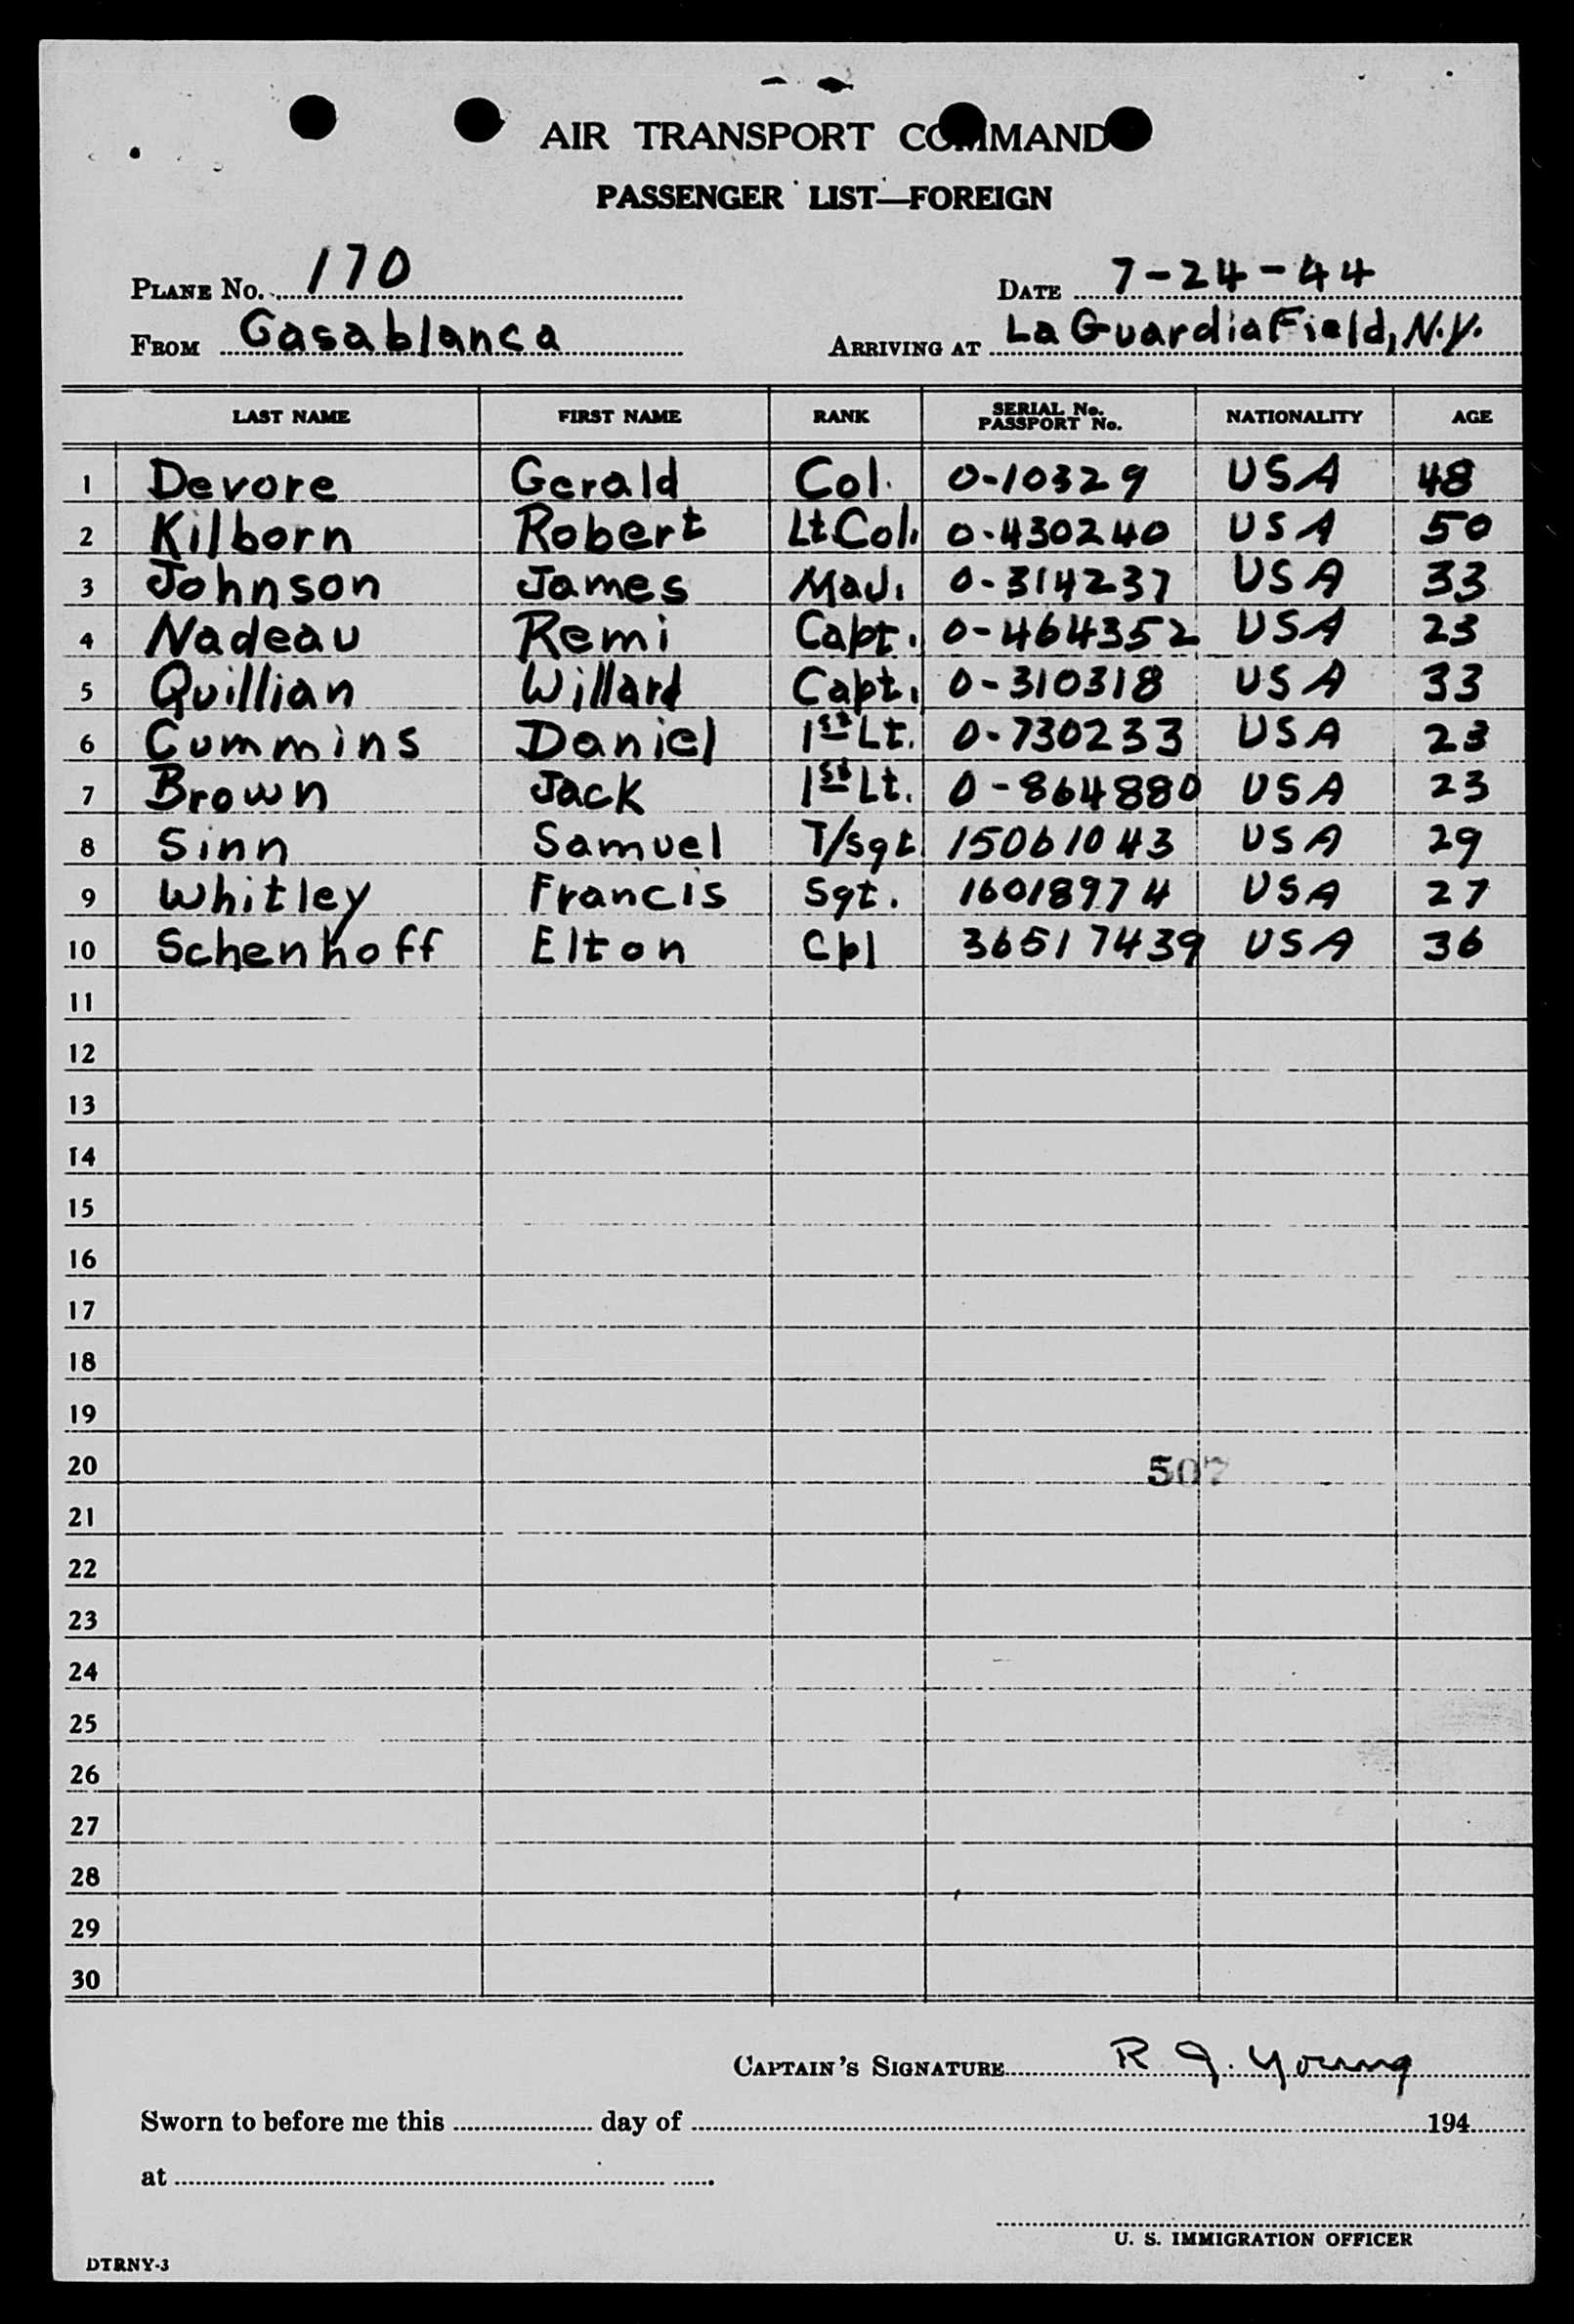 AIR TRANSPORT COMMAND
PASSENGER LIST—FOREIGN
PLANE No. 170 DATE 7-24-44
FROM Casablanca ARRIVING AT La Guardia Field, N.Y.
LAST NAME FIRST NAME RANK SERIAL No. PASSPORT No. NATIONALITY AGE
1 Devore Gerald Col. 0-10329 USA 48
2 Kilborn Robert Lt.Col. 0-430240 USA 50
3 Johnson James Maj. 0-314237 USA 33
4 Nadeau Remi Capt. 0-464352 USA 23
5 Quillian Willard Capt. 0-310318 USA 33
6 Cummins Daniel 1st Lt. 0-730233 USA 23
7 Brown Jack 1st Lt. 0-864880 USA 23
8 Sinn Samuel T/Sgt 15061043 USA 29
9 Whitley Francis Sgt. 16018974 USA 27
10 Schenhoff Elton Cpl 36517439 USA 36
11
12
13
14
15
16
17
18
19
20 507
21
22
23
24
25
26
27
28
29
30
CAPTAIN'S SIGNATURE R J. Young
Sworn to before me this day of 194
at
U. S. IMMIGRATION OFFICER
DTRNY-3